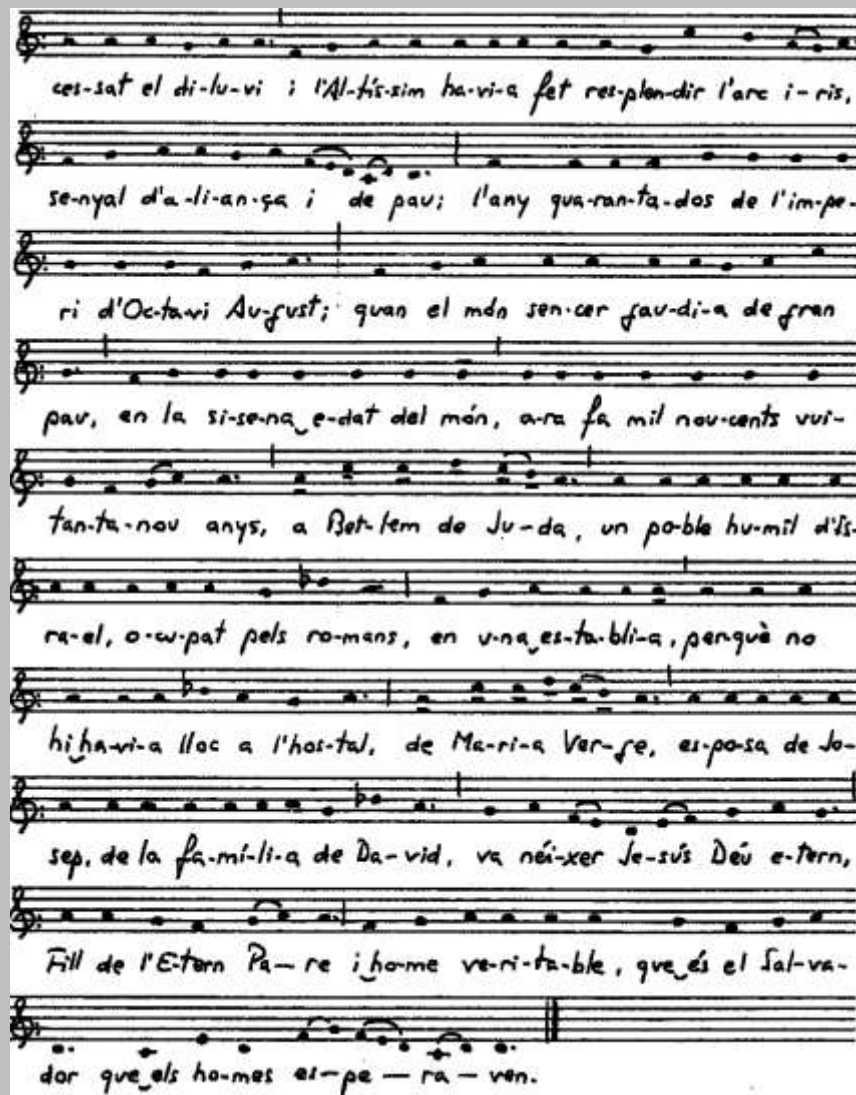 ces-sat el di-lu-vi i l'Al-tís-sim ha-vi-a fet res-plen-dir l'arc i-ris,
se-nyal d'a-li-an-ça i de pau; l'any qua-ran-ta-dos de l'im-pe-
ri d'Oc-ta-vi Au-gust; quan el món sen-cer gau-di-a de gran
pau, en la si-se-na‿e-dat del món, a-ra fa mil nou-cents vui-
tan-ta-nou anys, a Bet-lem de Ju-da, un po-ble hu-mil d'Is-
ra-el, o-cu-pat pels ro-mans, en u-na‿es-ta-bli-a, per-què no
hi‿ha-vi-a lloc a l'hos-tal, de Ma-ri-a Ver-ge, es-po-sa de Jo-
sep, de la fa-mí-li-a de Da-vid, va néi-xer Je-sús Déu e-tern,
Fill de l'E-tern Pa-re i‿ho-me ve-ri-ta-ble, que‿és el Sal-va-
dor que‿els ho-mes es-pe-ra-ven.